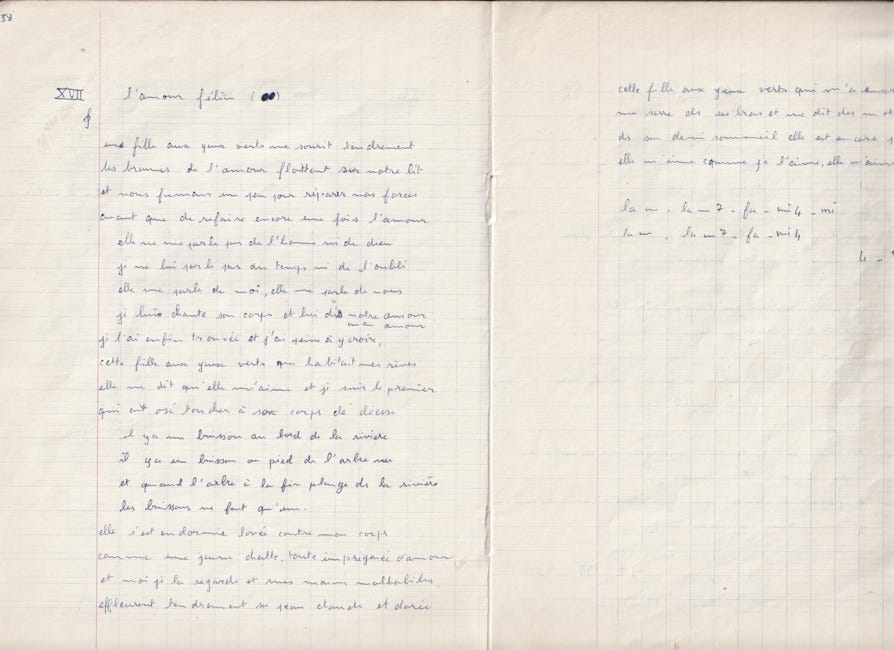 38
XVII l'amour félin (
une fille aux yeux verts me sourit tendrement
les brumes de l'amour flottent sur notre lit
et nous fumons un peu pour réparer nos forces
avant que de refaire encore une fois l'amour
elle ne me parle pas de l'homme ni de dieu
je ne lui parle pas du temps ni de l'oubli
elle me parle de moi, elle me parle de nous
je lui chante son corps et lui dis notre amour
mon amour
je l'ai enfin trouvée et j'ai peine à y croire,
cette fille aux yeux verts qui habitait mes rêves
elle me dit qu'elle m'aime et je suis le premier
qui ait osé toucher à son corps de déesse
il y a un buisson au bord de la rivière
il y a un buisson au pied de l'arbre nu
et quand l'arbre à la fin plonge ds la rivière
les buissons ne font qu'un.
elle s'est endormie lovée contre mon corps
comme une jeune chatte, toute imprégnée d'amour
et moi je la regarde et mes mains malhabiles
effleurent tendrement sa peau chaude et dorée
cette fille aux yeux verts qui m'a
me serre ds ses bras et me dit des
ds son demi sommeil elle est encore
elle m'aime comme je l'aime, elle m'aime
la m . la m 7 - fa - mi 4 - mi
la m . la m 7 - fa - mi 4
4 -